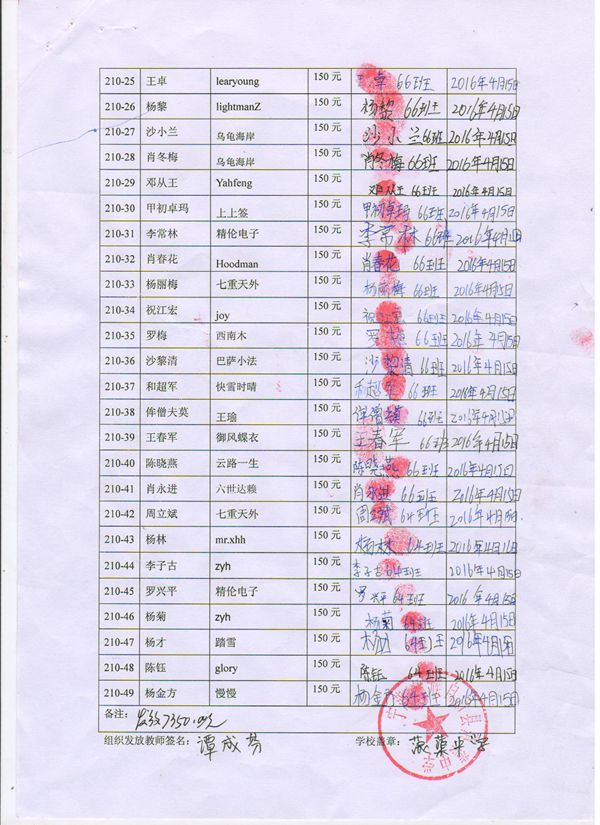 210-25 王卓 learyoung 150 元 卓 66班 2016年4月15日
210-26 杨黎 lightmanZ 150 元 杨黎 66班 2016年4月15日
210-27 沙小兰 乌龟海岸 150 元 沙小兰 66班 2016年4月15日
210-28 肖冬梅 乌龟海岸 150 元 肖冬梅 66班 2016年4月15日
210-29 邓从王 Yahfeng 150 元 邓从王 66班 2016年4月15日
210-30 甲初卓玛 上上签 150 元 甲初卓玛 66班 2016年4月15日
210-31 李常林 精伦电子 150 元 李常林 66班 2016年4月
210-32 肖春花 Hoodman 150 元 肖春花 66班 2016年4月15日
210-33 杨丽梅 七重天外 150 元 杨丽梅 66班 2016年4月15日
210-34 祝江宏 joy 150 元 祝 66班 2016年4月15日
210-35 罗梅 西南木 150 元 罗 66班 2016年4月15日
210-36 沙黎清 巴萨小法 150 元 沙黎清 66班 2016年4月15日
210-37 和超军 快雪时晴 150 元 和超军 66班 2016年4月15日
210-38 侔僧夫莫 王瑜 150 元 66班 2016年4月15日
210-39 王春军 御风蝶衣 150 元 王春军 66班 2016年4月15日
210-40 陈晓燕 云路一生 150 元 陈晓燕 66班 2016年4月15日
210-41 肖永进 六世达赖 150 元 肖永进 66班 2016年4月15日
210-42 周立斌 七重天外 150 元 周立斌 64班 2016年4月
210-43 杨林 mr.xhh 150 元 杨林 64班
210-44 李子古 zyh 150 元 李子古 64班 2016年4月15日
210-45 罗兴平 精伦电子 150 元 罗兴平 64班 2016年4月15日
210-46 杨菊 zyh 150 元 杨菊 64班 2016年4月15日
210-47 杨才 踏雪 150 元 杨 64班 2016年4月15日
210-48 陈钰 glory 150 元 陈钰 64班 2016年4月15日
210-49 杨金方 慢慢 150 元 杨金方 64班 2016年4月15日
备注: 发放7350.
组织发放教师签名: 谭成芬 学校盖章: 中学